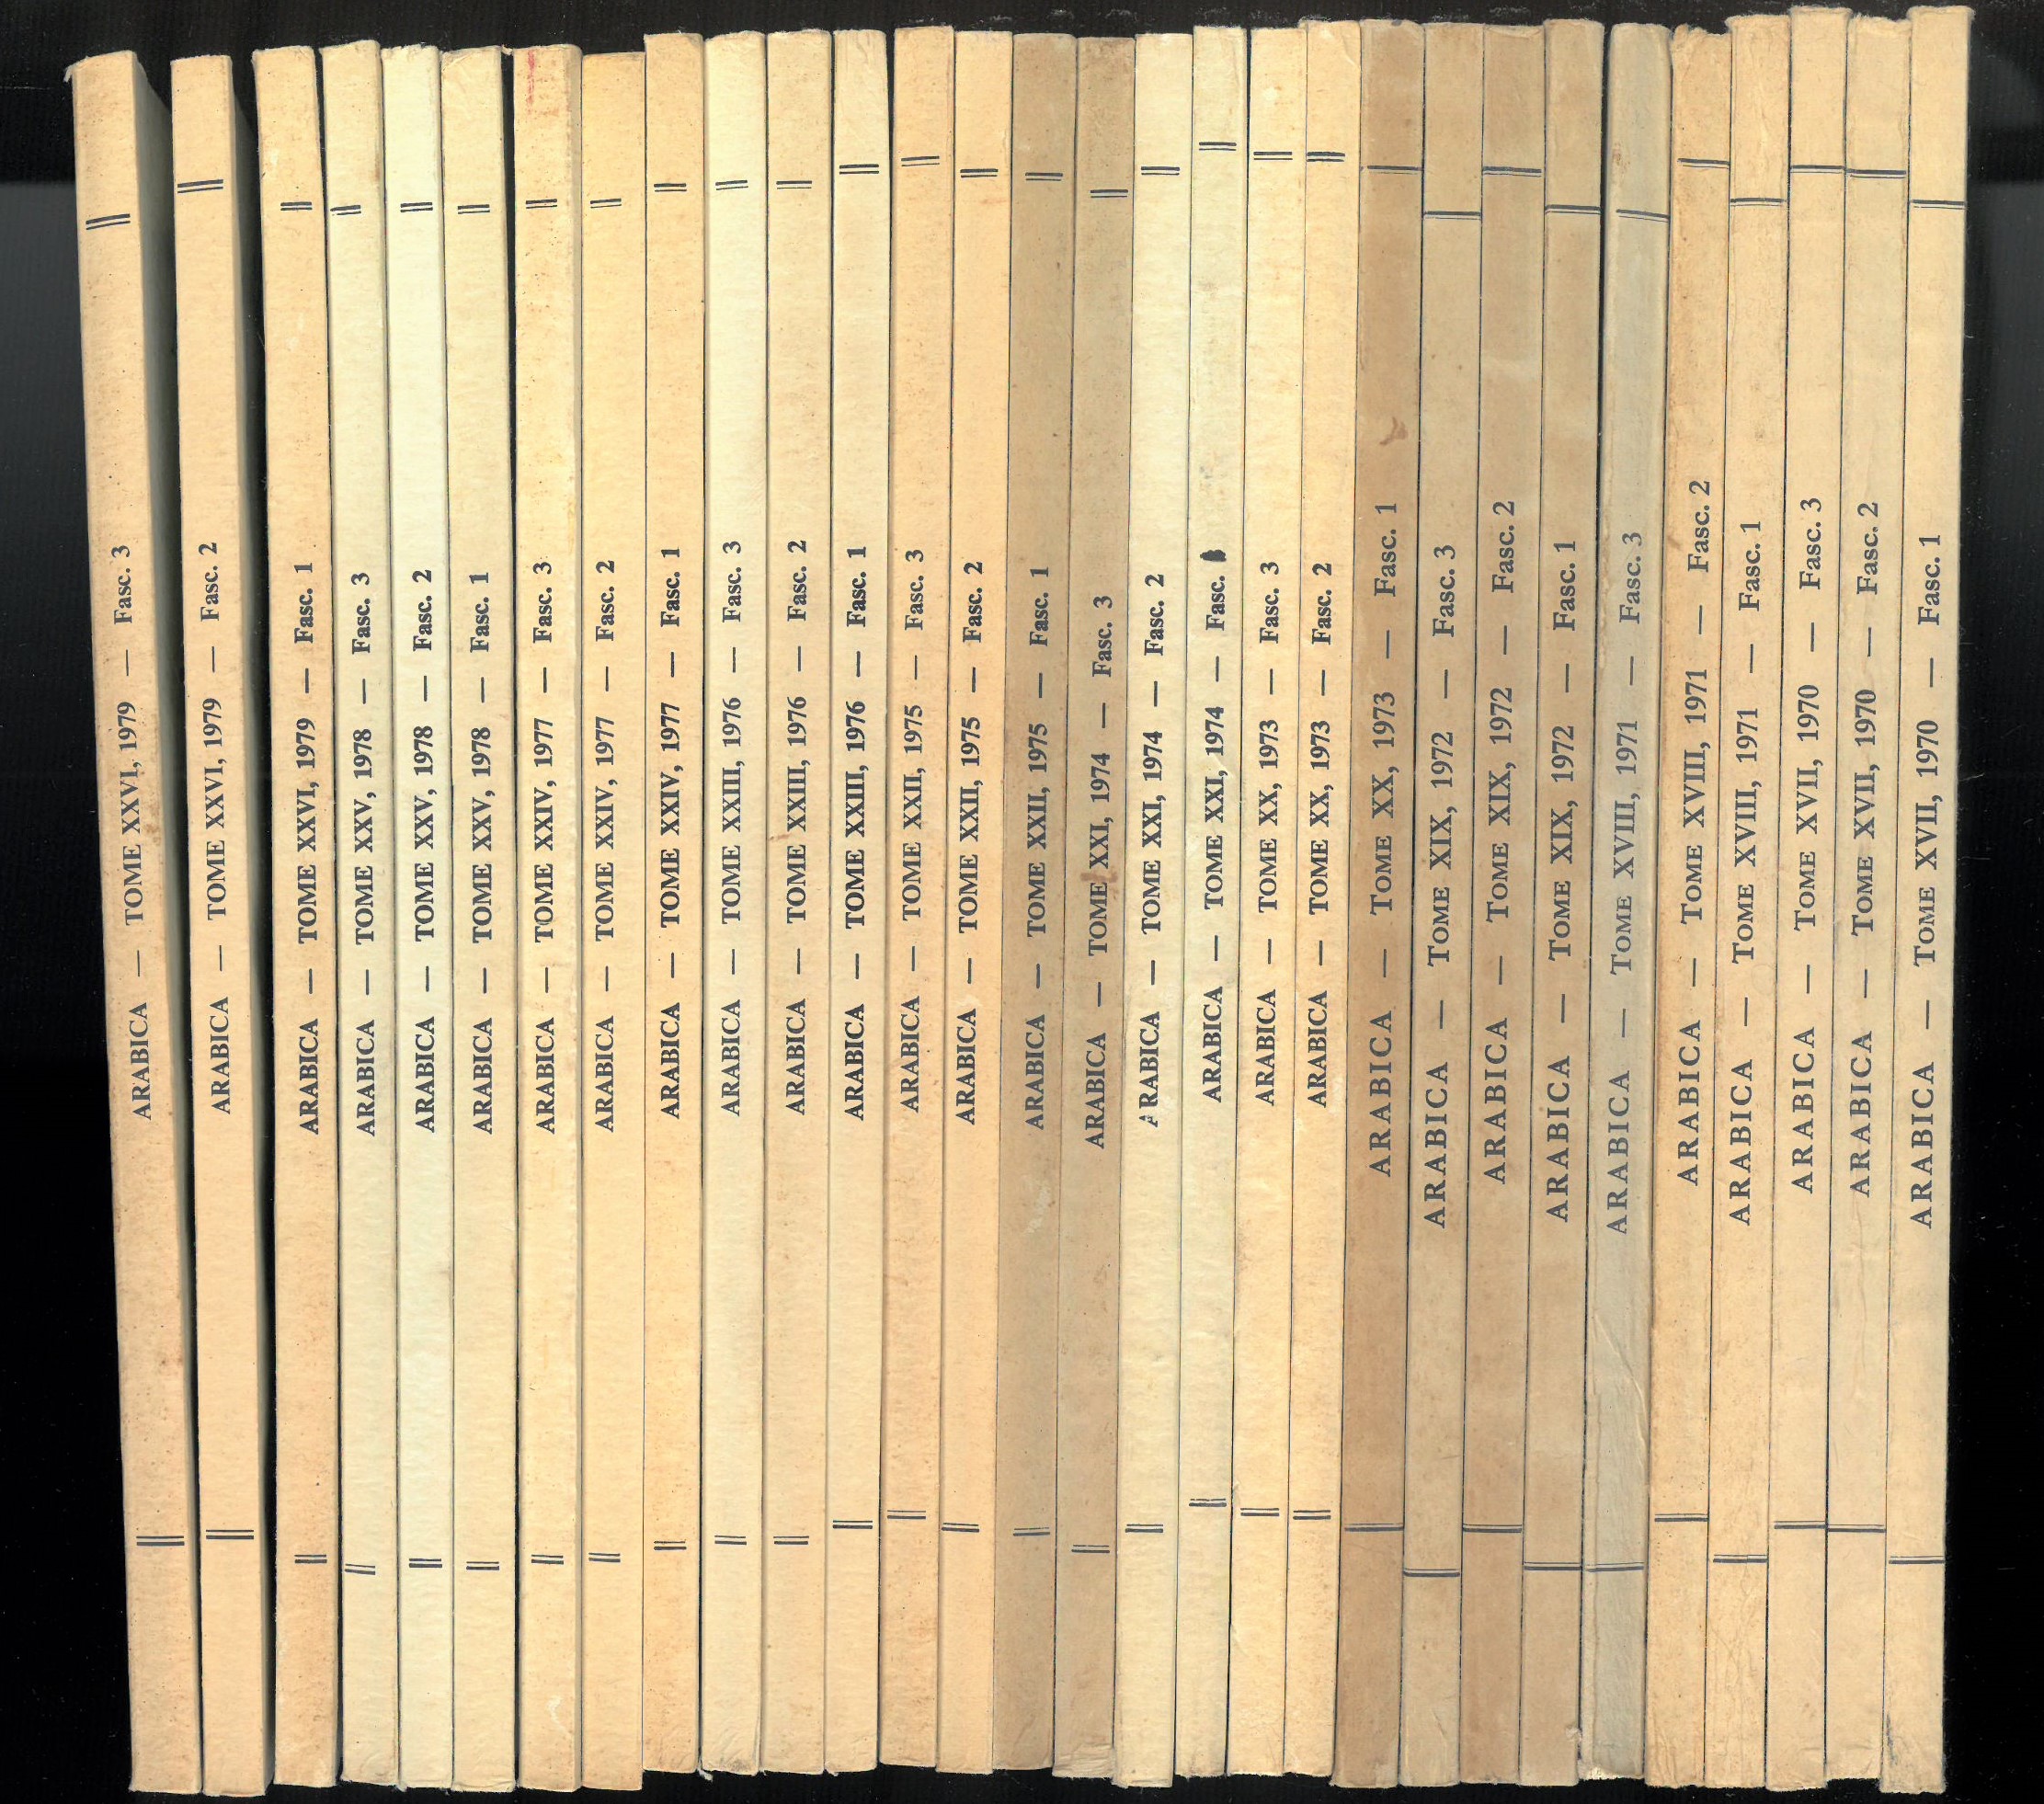 ARABICA — TOME XXVI, 1979 — Fasc. 3
ARABICA — TOME XXVI, 1979 — Fasc. 2
ARABICA — TOME XXVI, 1979 — Fasc. 1
ARABICA — TOME XXV, 1978 — Fasc. 3
ARABICA — TOME XXV, 1978 — Fasc. 2
ARABICA — TOME XXV, 1978 — Fasc. 1
ARABICA — TOME XXIV, 1977 — Fasc. 3
ARABICA — TOME XXIV, 1977 — Fasc. 2
ARABICA — TOME XXIV, 1977 — Fasc. 1
ARABICA — TOME XXIII, 1976 — Fasc. 3
ARABICA — TOME XXIII, 1976 — Fasc. 2
ARABICA — TOME XXIII, 1976 — Fasc. 1
ARABICA — TOME XXII, 1975 — Fasc. 3
ARABICA — TOME XXII, 1975 — Fasc. 2
ARABICA — TOME XXII, 1975 — Fasc. 1
ARABICA — TOME XXI, 1974 — Fasc. 3
ARABICA — TOME XXI, 1974 — Fasc. 2
ARABICA — TOME XXI, 1974 — Fasc.
ARABICA — TOME XX, 1973 — Fasc. 3
ARABICA — TOME XX, 1973 — Fasc. 2
ARABICA — TOME XX, 1973 — Fasc. 1
ARABICA — TOME XIX, 1972 — Fasc. 3
ARABICA — TOME XIX, 1972 — Fasc. 2
ARABICA — TOME XIX, 1972 — Fasc. 1
ARABICA — TOME XVIII, 1971 — Fasc. 3
ARABICA — TOME XVIII, 1971 — Fasc. 2
ARABICA — TOME XVIII, 1971 — Fasc. 1
ARABICA — TOME XVII, 1970 — Fasc. 3
ARABICA — TOME XVII, 1970 — Fasc. 2
ARABICA — TOME XVII, 1970 — Fasc. 1